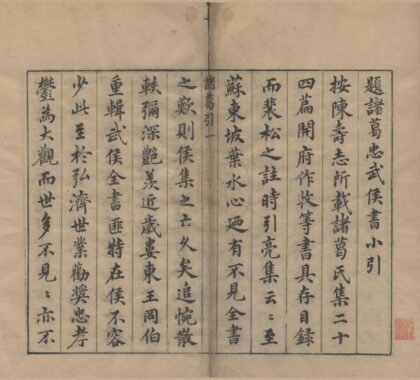 題諸葛忠武侯書小引
按陳壽志所載諸葛氏集二十
四篇開府作牧等書具存目錄
而裴松之註時引亮集云〻至
蘇東坡葉水心廼有不見全書
諸葛引 一
之歎則侯集之亡久矣追惋散
軼彌深艷羨近歲婁東王岡伯
重輯武侯全書匪特在侯不容
少此至於弘濟世業勸奬忠孝
鬱爲大觀而世多不見〻亦不